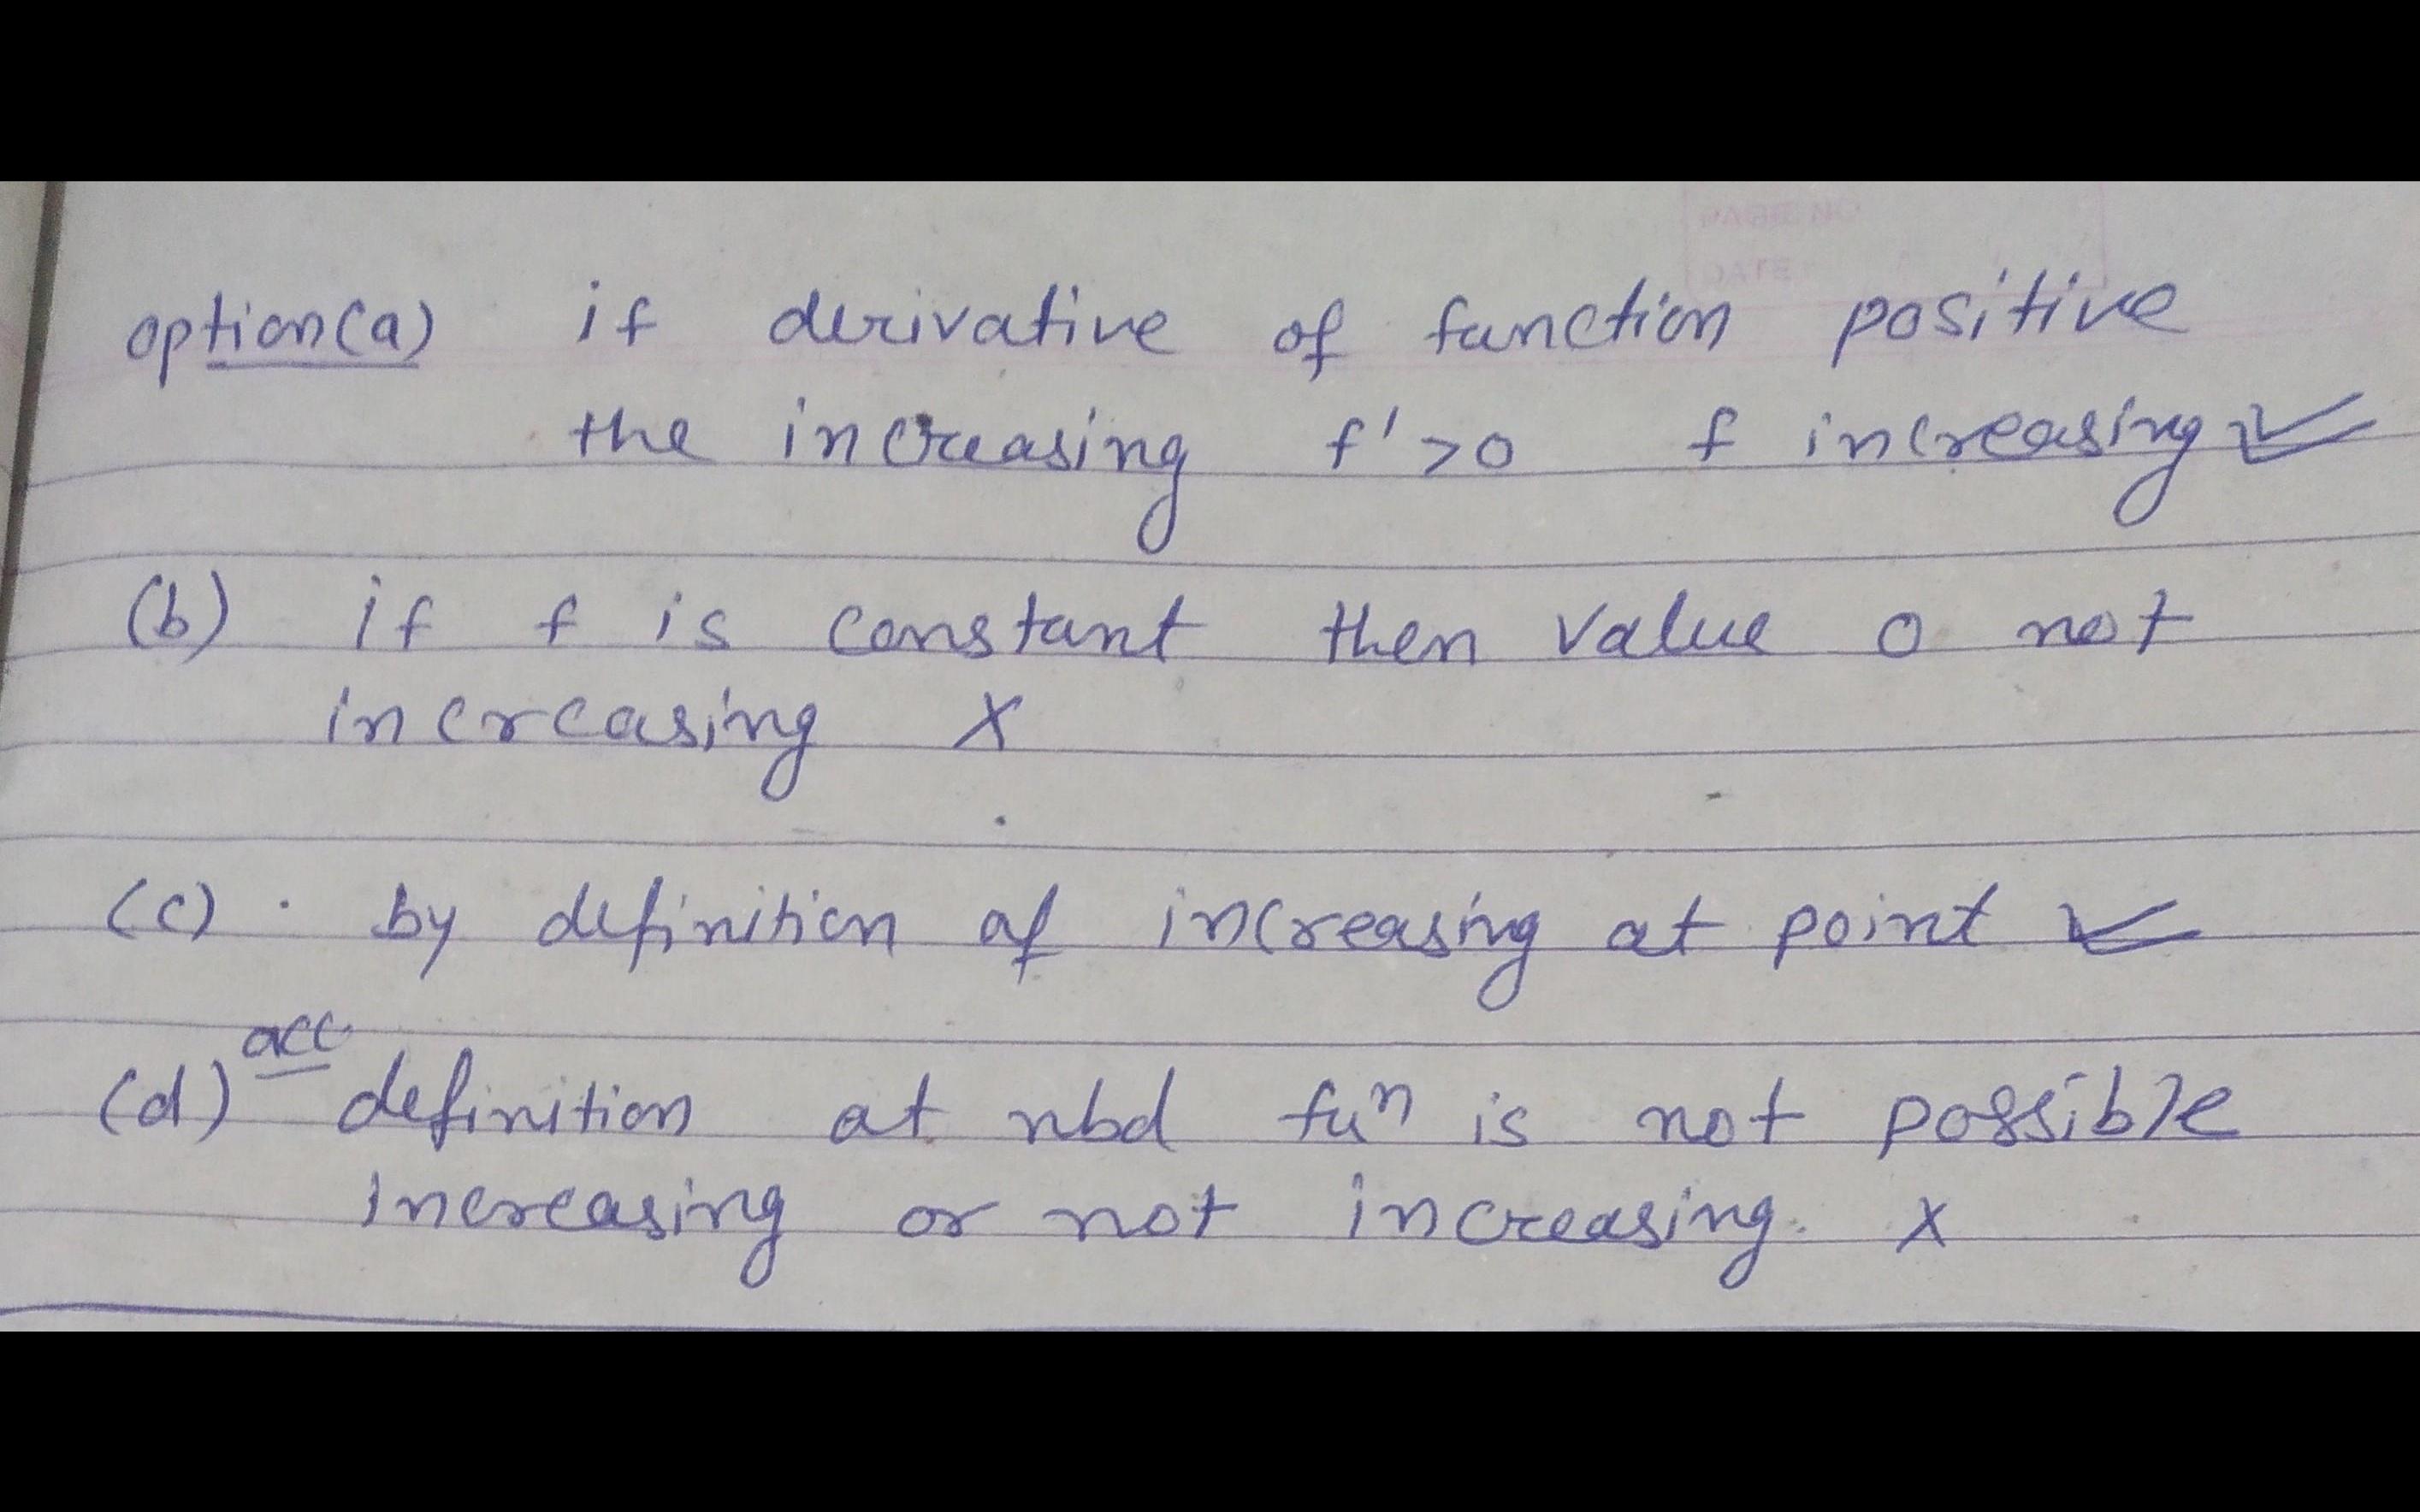 option(a) if derivative of function positive
the increasing f' >0 f increasing ✓
(b) if f is constant then value 0 not
increasing X
(c) . by definition of increasing at point ✓
acc
(d) definition at nbd fuⁿ is not possible
increasing or not increasing. X